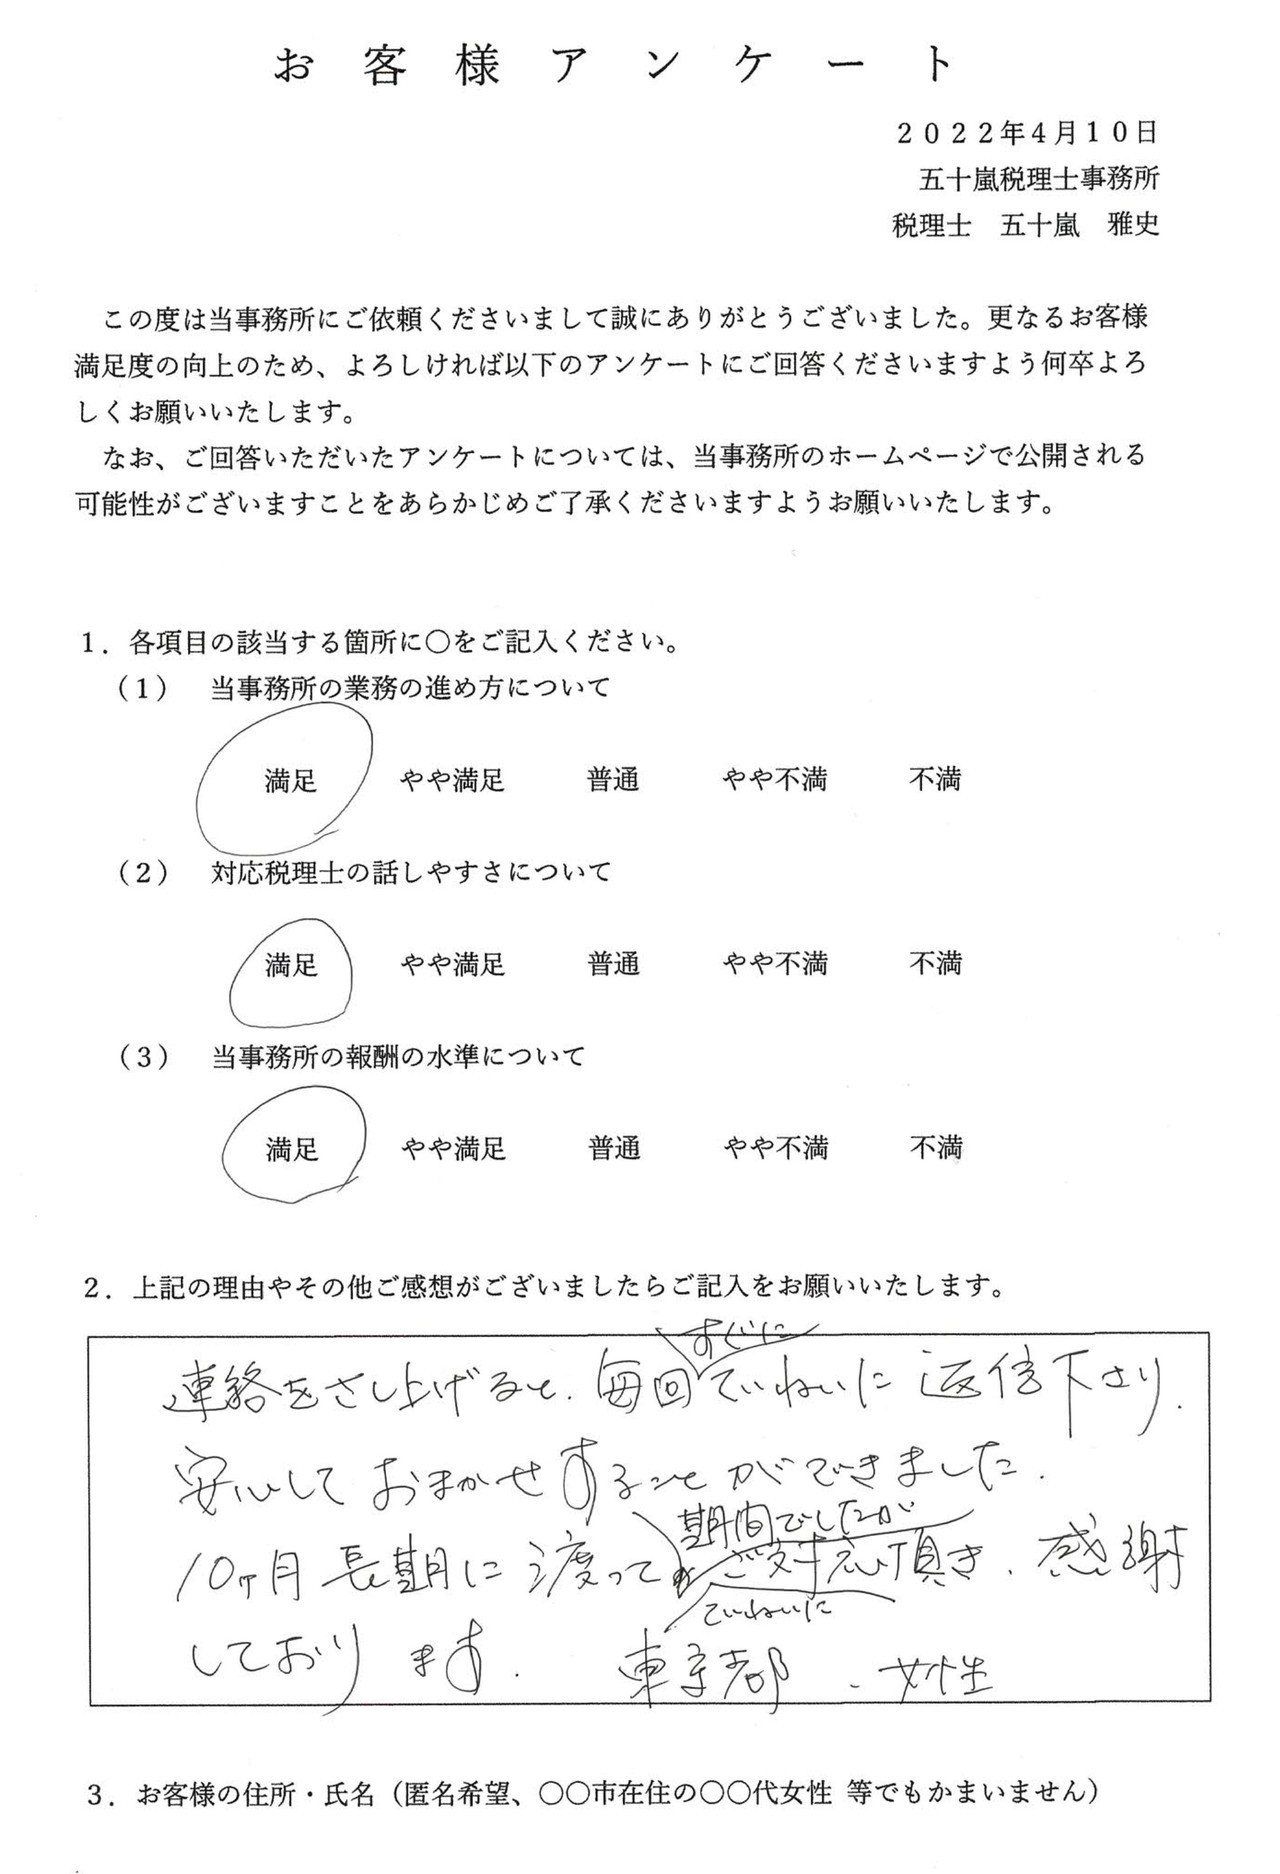 お客様アンケート
２０２２年４月１０日
五十嵐税理士事務所
税理士　五十嵐　雅史
この度は当事務所にご依頼くださいまして誠にありがとうございました。更なるお客様
満足度の向上のため、よろしければ以下のアンケートにご回答くださいますよう何卒よろ
しくお願いいたします。
なお、ご回答いただいたアンケートについては、当事務所のホームページで公開される
可能性がございますことをあらかじめご了承くださいますようお願いいたします。
１．各項目の該当する箇所に〇をご記入ください。
（１）　当事務所の業務の進め方について
満足　やや満足　普通　やや不満　不満
（２）　対応税理士の話しやすさについて
満足　やや満足　普通　やや不満　不満
（３）　当事務所の報酬の水準について
満足　やや満足　普通　やや不満　不満
２．上記の理由やその他ご感想がございましたらご記入をお願いいたします。
すぐに
連絡をさし上げると、毎回ていねいに返信下さり、
安心しておまかせすることができました。
期間でしたが
10ヶ月長期に渡ってご対応頂き、感謝
ていねいに
しております。　東京都、女性
３．お客様の住所・氏名（匿名希望、〇〇市在住の〇〇代女性 等でもかまいません）